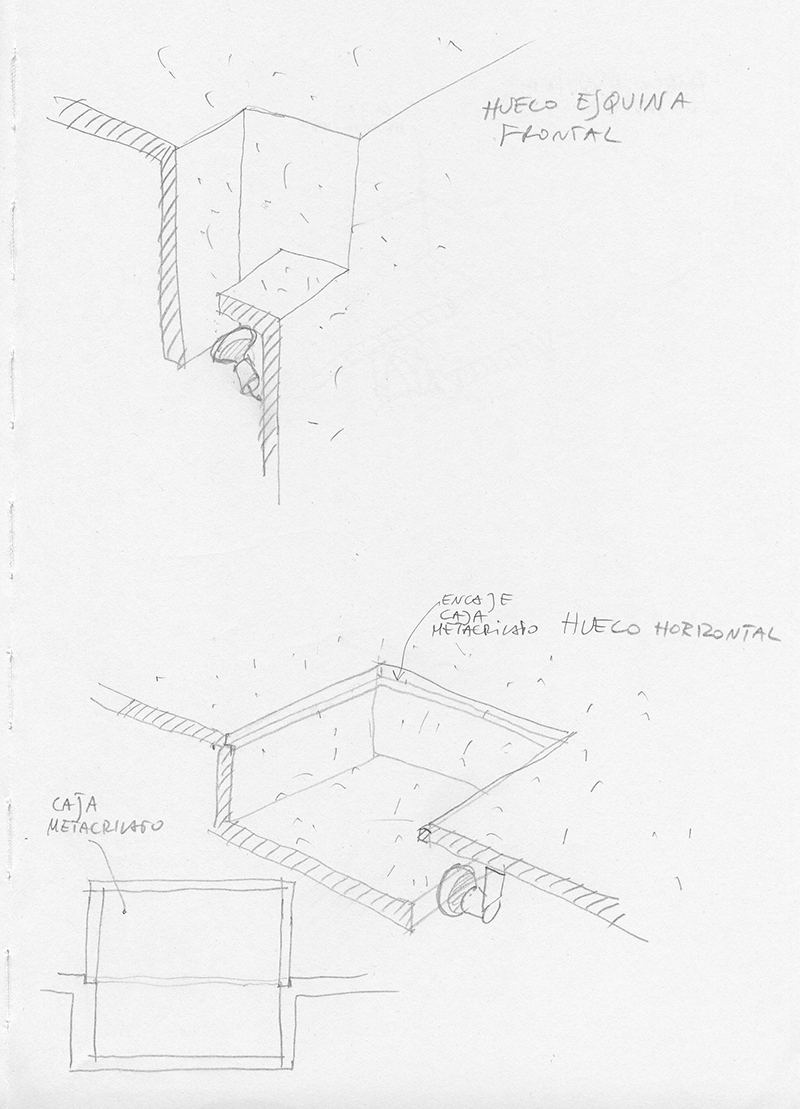 HUECO ESQUINA
FRONTAL
ENCAJE
CAJA
METACRILATO
HUECO HORIZONTAL
CAJA
METACRILATO